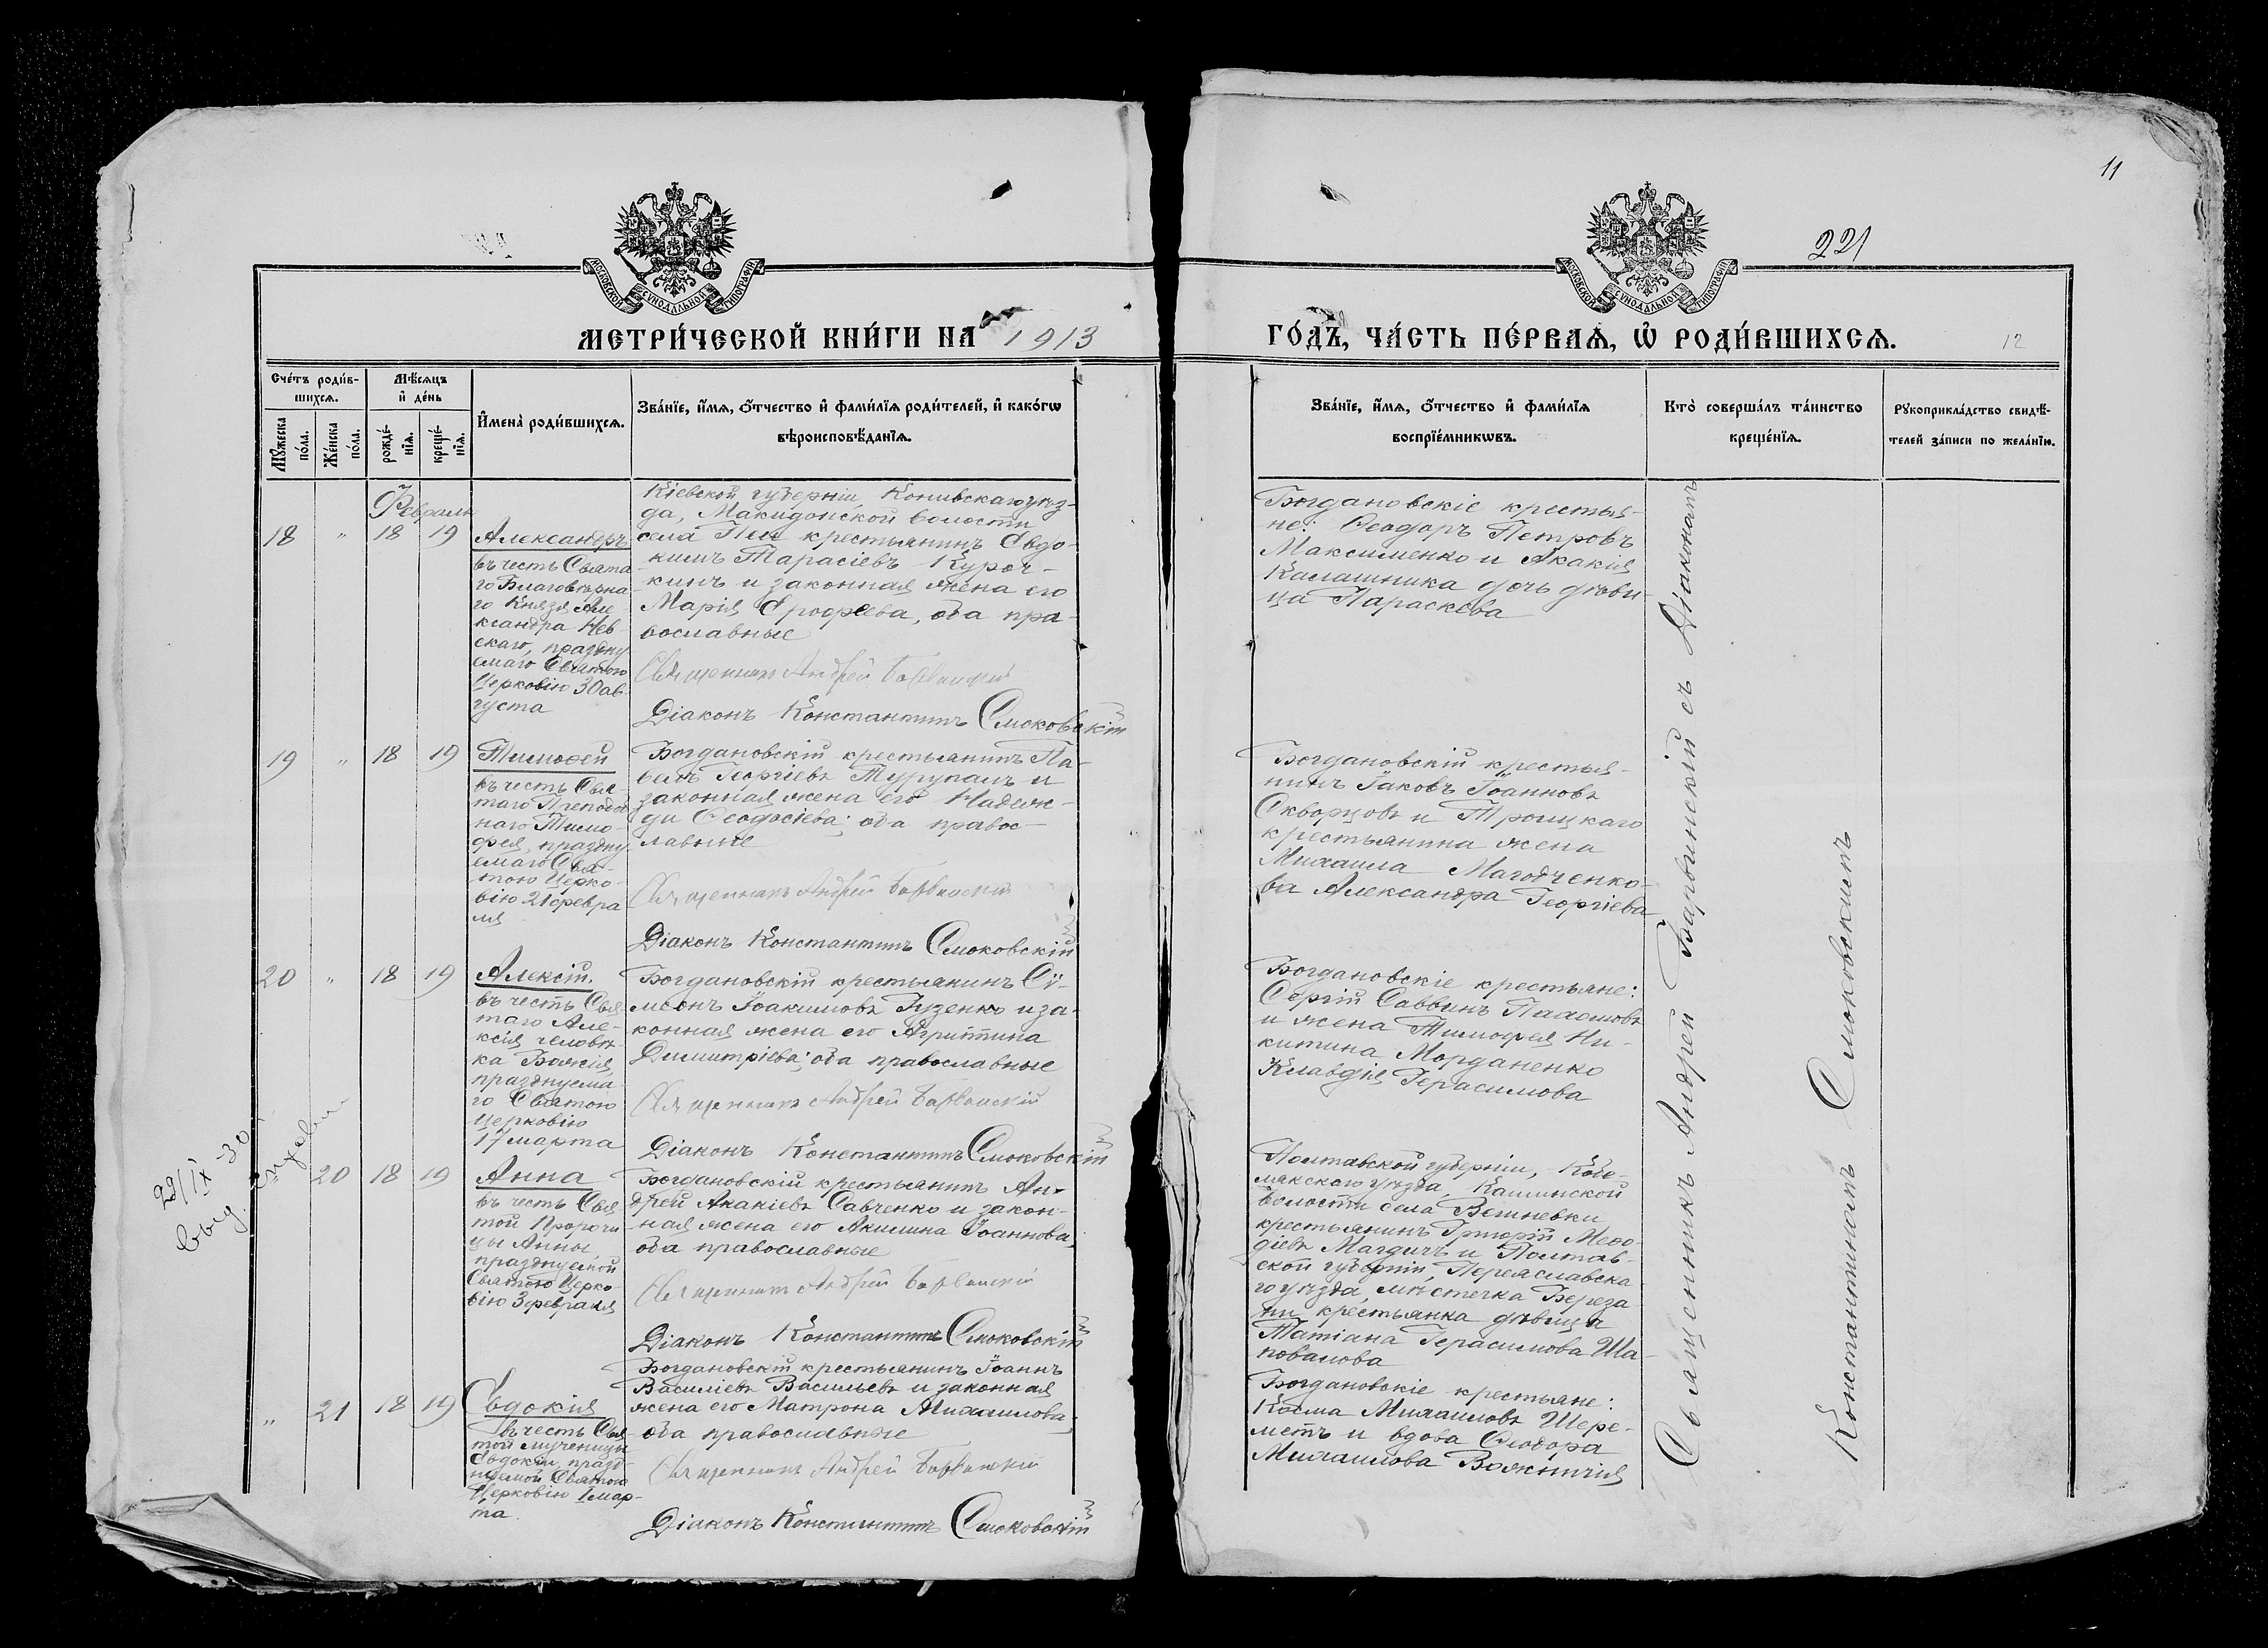 11
221
МОСКОВСКОЙ СУНОДАЛЬНОЙ ТИПОГРАФІИ
МОСКОВСКОЙ СУНОДАЛЬНОЙ ТИПОГРАФІИ
МЕТРИ́ЧЕСКОЙ КНИ́ГИ НА 1913
ГО́ДЪ, ЧА́СТЬ ПЕ́РВАѦ, Ѡ҆ РОДИ́ВШИХСѦ.
12
Сче́тъ роди́в-
шихсѧ.
Мѣ́сѧцъ
и҆ де́нь
Мꙋ́жеска
по́ла.
Же́нска
по́ла.
рожде́-
нїѧ.
креще́-
нїѧ.
И҆мена̀ роди́вшихсѧ.
Зва́нїе, и҆́мѧ, ѻ҆́тчество и҆ фами́лїѧ роди́телей, и҆ како́гѡ
вѣроисповѣ́данїѧ.
Зва́нїе, и҆́мѧ, ѻ҆́тчество и҆ фами́лїѧ
воспрїе́мникѡвъ.
Кто̀ соверша́лъ та́инство
креще́нїѧ.
Рꙋкоприкла́дство свидѣ́-
телей за́писи по жела́нїю.
Февраль
18 " 18 19
Александръ
въ честь Свята-
го Благовѣрна-
го Князя Але-
ксандра Нев-
скаго, праздну
емаго Святою
Церковію 30 ав-
густа
Кіевской губерніи, Канивскаго уѣз-
да, Македонской волости
села крестьянинъ Евдо-
кимъ Тарасіевъ Куроч-
кинъ и законная жена его
Марія Ерофеева, оба пра-
вославные
Священникъ Андрей Барвинскій
Діаконъ Константинъ Смоковскій
Богдановскіе крестья-
не: Ѳеодоръ Петровъ
Максименко и Акакія
Калашника дочь дѣви-
ца Параскева
19 " 18 19
Тимоѳей
въ честь Свя-
таго Преподоб
наго Тимо-
фея, праздну
емаго Свя-
тою Церко-
вію 21 февра
ля
Богдановскій крестьянинъ Па-
велъ Георгіевъ Турупалъ и
законная жена его Надеж-
да Ѳеодосіева; оба правос-
лавные
Священникъ Андрей Барвинскій
Діаконъ Константинъ Смоковскій
Богдановскій крестья-
нинъ Іаковъ Іоанновъ
Скворцовъ и Троицкаго
крестьянина жена
Михаила Магодченко-
ва Александра Георгіева
20 " 18 19
Алексій
въ честь Свя-
таго Але-
ксія человѣ-
ка Божія,
празднуема-
го Святою
Церковію
17 марта
Богдановскій крестьянинъ Сѵ-
меонъ Іоакимовъ Гузенко и за-
конная жена его Агриппина
Димитріева; оба православные
Священникъ Андрей Барвинскій
Діаконъ Константинъ Смоковскій
Богдановскіе крестьяне:
Сергій Саввинъ
и жена Тимофея Ни-
китина Морданенко
Клавдія Герасимова
29/IX-30
выд.
" 20 18 19
Анна
въ честь Свя
той Пророчи
цы Анны,
празднуемой
Святою Церко-
вію 3 февраля
Богдановскій крестьянинъ Ан-
дрей Акакіевъ Савченко и закон-
ная жена его Акилина Іоаннова,
оба православные
Священникъ Андрей Барвинскій
Діаконъ Константинъ Смоковскій
Полтавской губерніи, Кобе-
лякскаго уѣзда,
волости села
крестьянинъ Григорій Меѳо-
діевъ Магдичъ и Полтав-
ской губерніи, Переяславска-
го уѣзда, мѣстечка Береза-
ни крестьянка дѣвица
Татіана Герасимова Ша-
повалова
" 21 18 19
Евдокія
въ честь Свя
той мученицы
Евдокіи, празд-
нуемой Святою
Церковію 1 мар-
та
Богдановскій крестьянинъ Іоаннъ
Василіевъ Васильевъ и законная
жена его Матрона Михаилова,
оба православные
Священникъ Андрей Барвинскій
Діаконъ Константинъ Смоковскій
Богдановскіе крестьяне:
Косма Михаиловъ Шере-
метъ и вдова Ѳеодора
Михаилова
Священникъ Андрей Барвинскій съ Діакономъ
Константиномъ Смоковскимъ